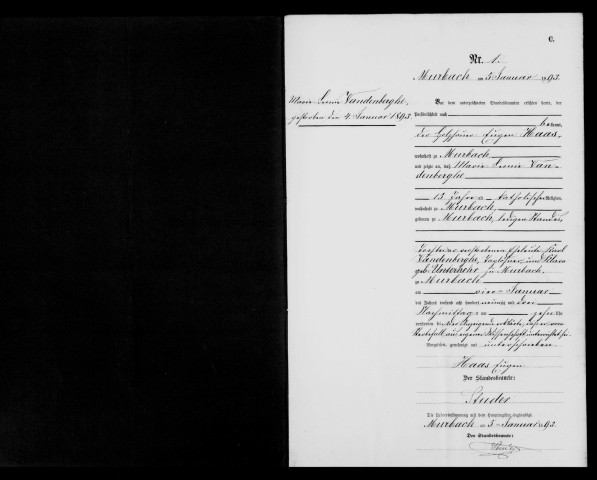 C.
Nr. 1.
Murbach am 5 Januar 1893.
Marie Vandenberghe,
gestorben den 4. Januar 1893
Vor dem unterzeichneten Standesbeamten erschien heute, der
Persönlichkeit nach
bekannt,
der Eugen Haas,
wohnhaft zu Murbach
und zeigte an, daß Marie Van-
denberghe
13 Jahre a katholischer Religion,
wohnhaft zu Murbach,
geboren zu Murbach, ledigen Standes,
Tochter verstorbenen Eheleute
Vandenberghe, Taglöhner, und Klara
geb. Unterkehr zu Murbach,
zu Murbach
am vier Januar
des Jahres tausend acht hundert neunzig und drei
Nachmittags um zehn Uhr
verstorben sei. Der Anzeigende erklärte, daß er vom
Sterbefall aus eigener Wissenschaft unterrichtet sei
Vorgelesen, genehmigt und unterschrieben
Haas Eugen
Der Standesbeamte:
Studer
Die Uebereinstimmung mit dem Hauptregister beglaubigt
Murbach am 5 Januar 1893.
Der Standesbeamte:
Studer